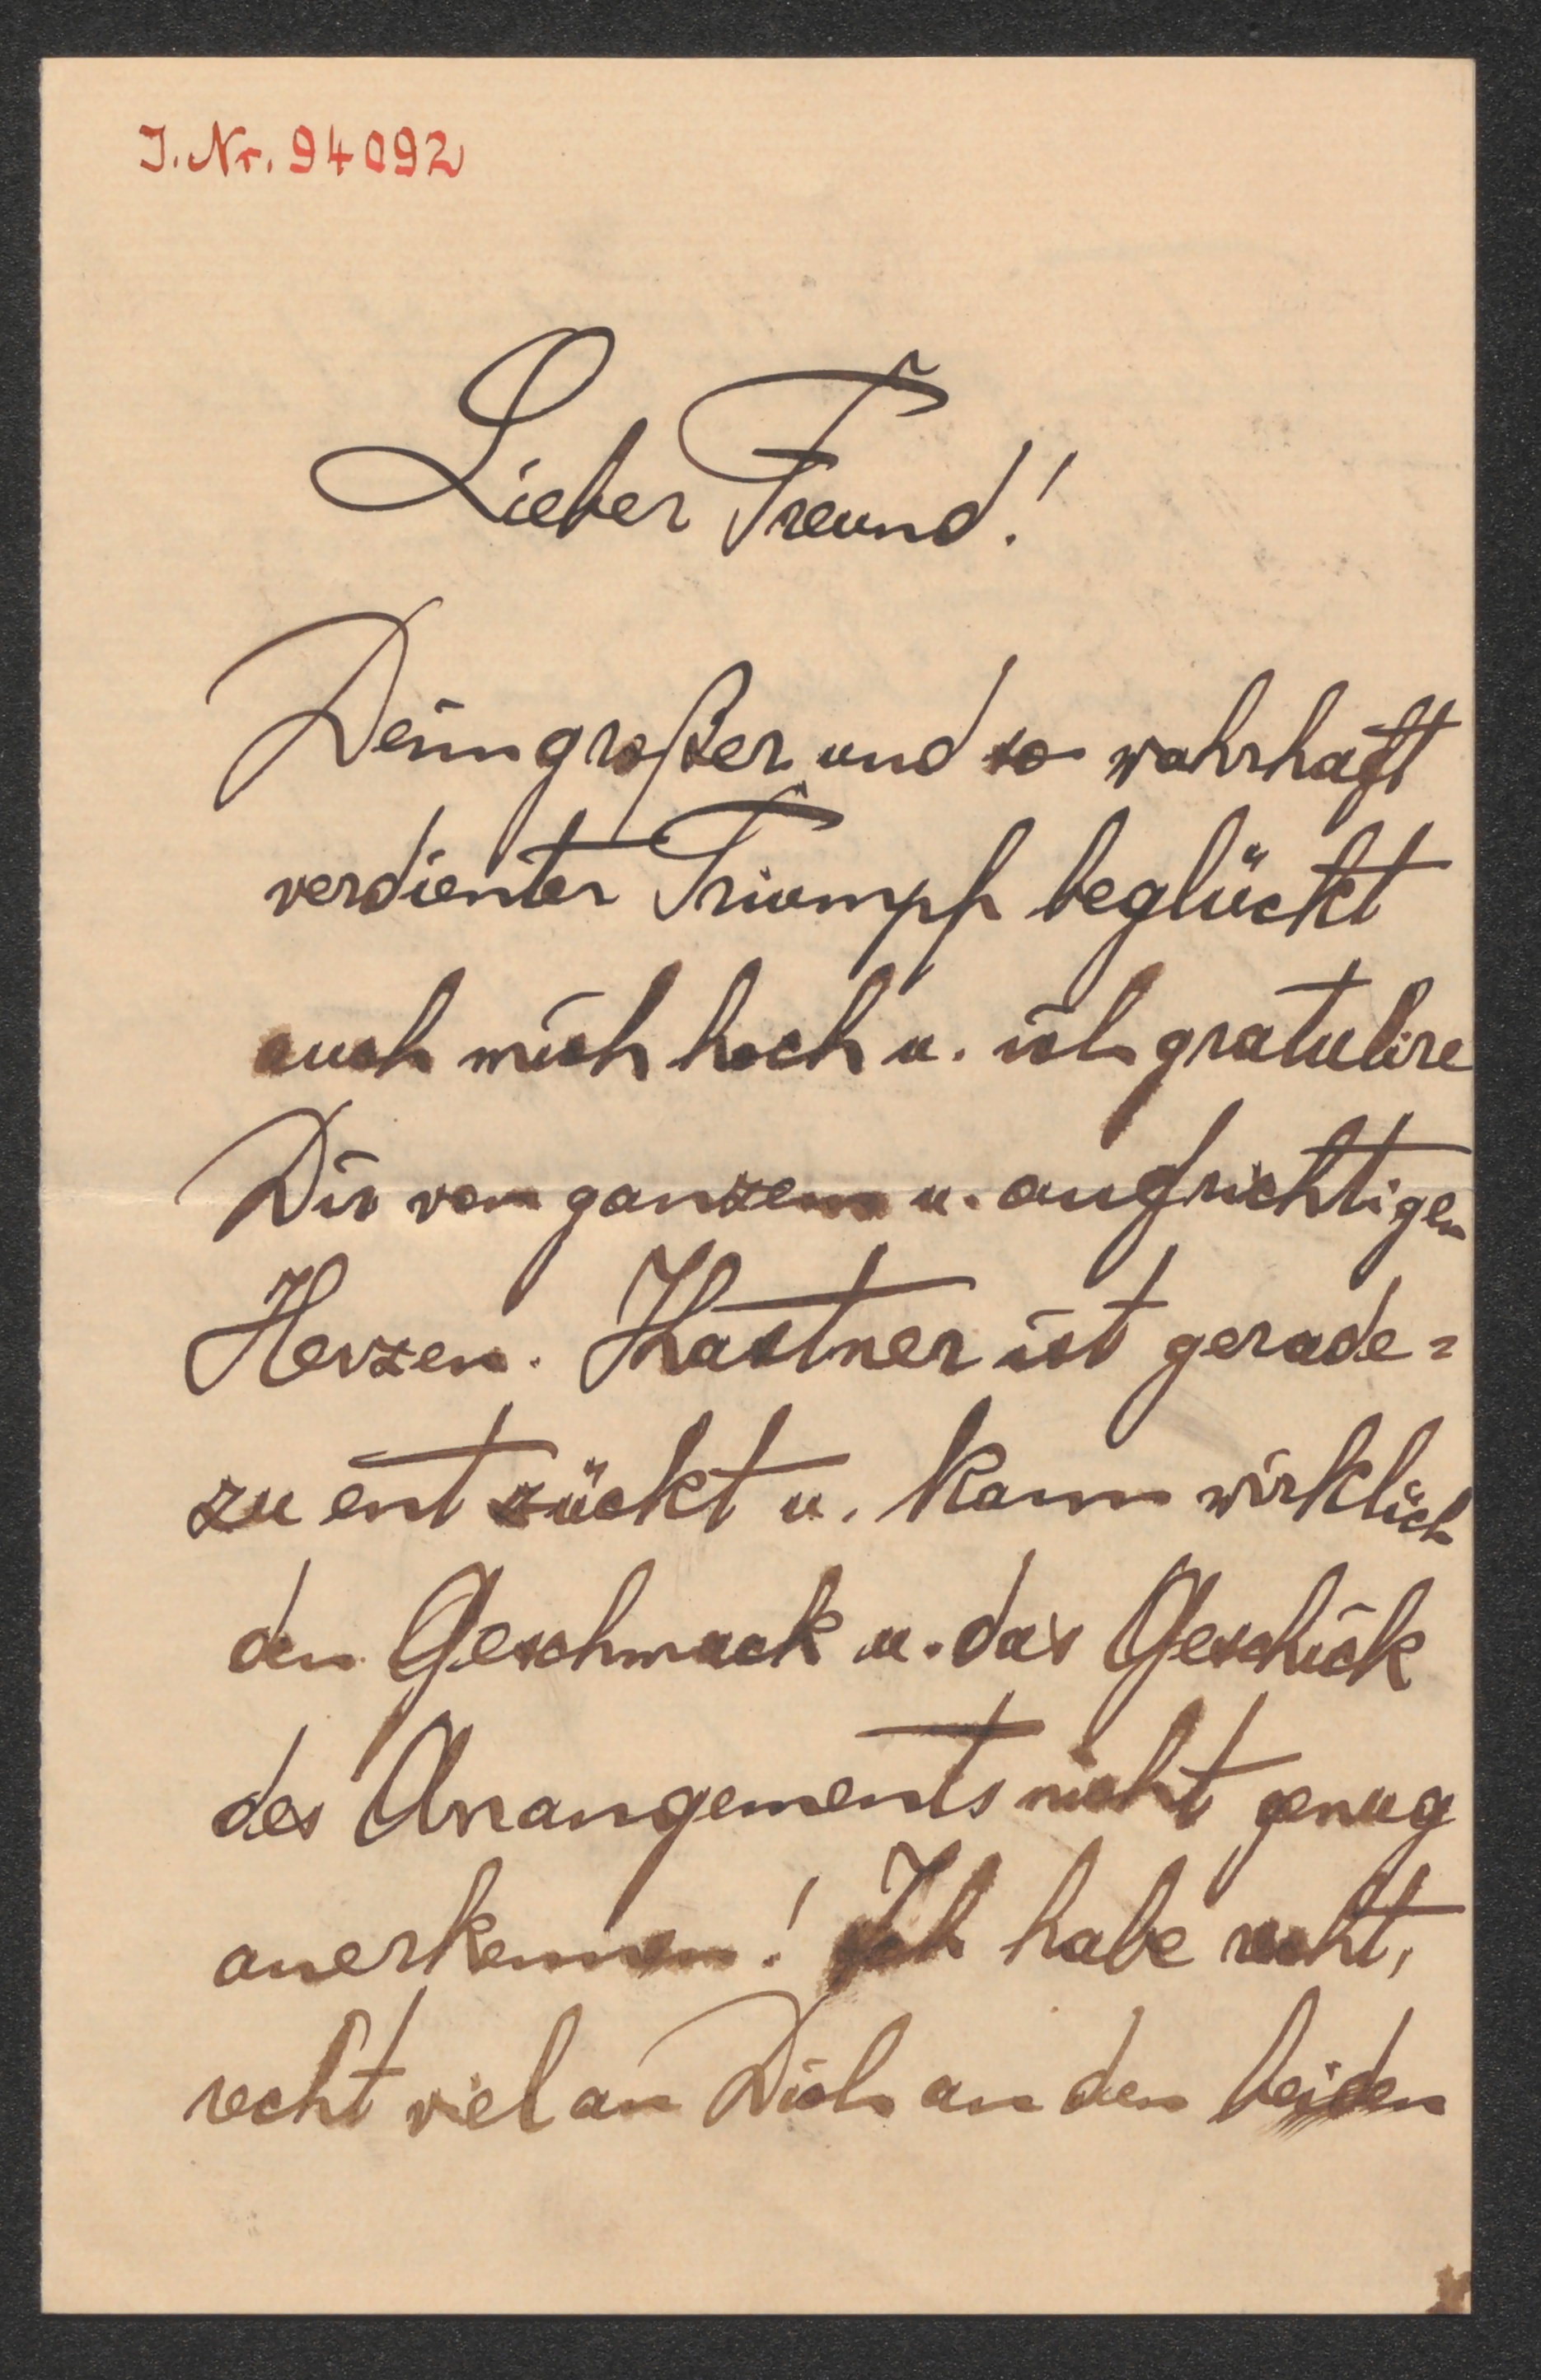 J. Nr. 94092
Lieber Freund!
Dein großer und so wahrhaft
verdienter Triumph beglückt
auch mich hoch u. ich gratulire
Dir von ganzem u. aufrichtigem
Herzen. Kastner ist gerade=
zu entzückt u. kann wirklich
den Geschmack u. das Geschick
des Arrangements nicht genug
anerkennen! Ich habe recht,
recht viel an Dich an den beiden